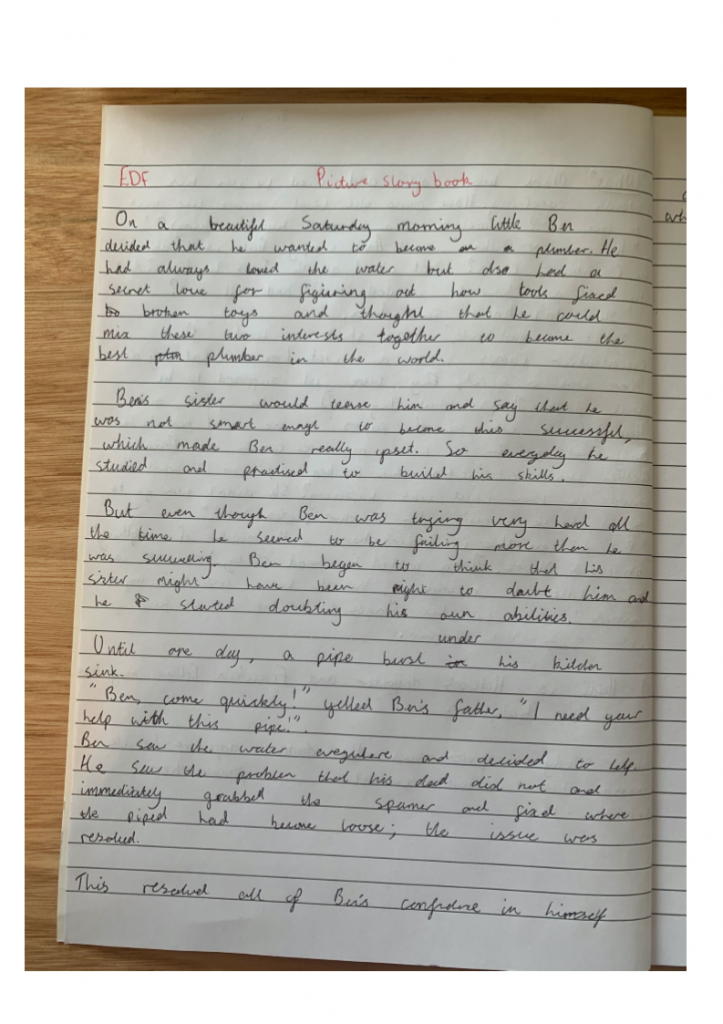 EDF Picture story book
On a beautiful Saturday morning little Ben
decided that he wanted to become an a plumber. He
had always loved the water but also had a
secret love for figuring out how tools fixed
to broken toys and thought that he could
mix these two interests together to become the
best plumber in the world.
Ben's sister would tease him and say that he
was not smart enough to become this successful,
which made Ben really upset. So everyday he
studied and practised to build his skills.
But even though Ben was trying very hard all
the time he seemed to be failing more than he
was succeeding. Ben began to think that his
sister might have been right to doubt him and
he started doubting his own abilities.
under
Until one day, a pipe burst in his kitchen
sink.
"Ben, come quickly!" yelled Ben's father, "I need your
help with this pipe!".
Ben saw the water everywhere and decided to help.
He saw the problem that his dad did not and
immediately grabbed the spanner and fixed where
the piped had become loose; the issue was
resolved.
This resolved all of Ben's confidence in himself